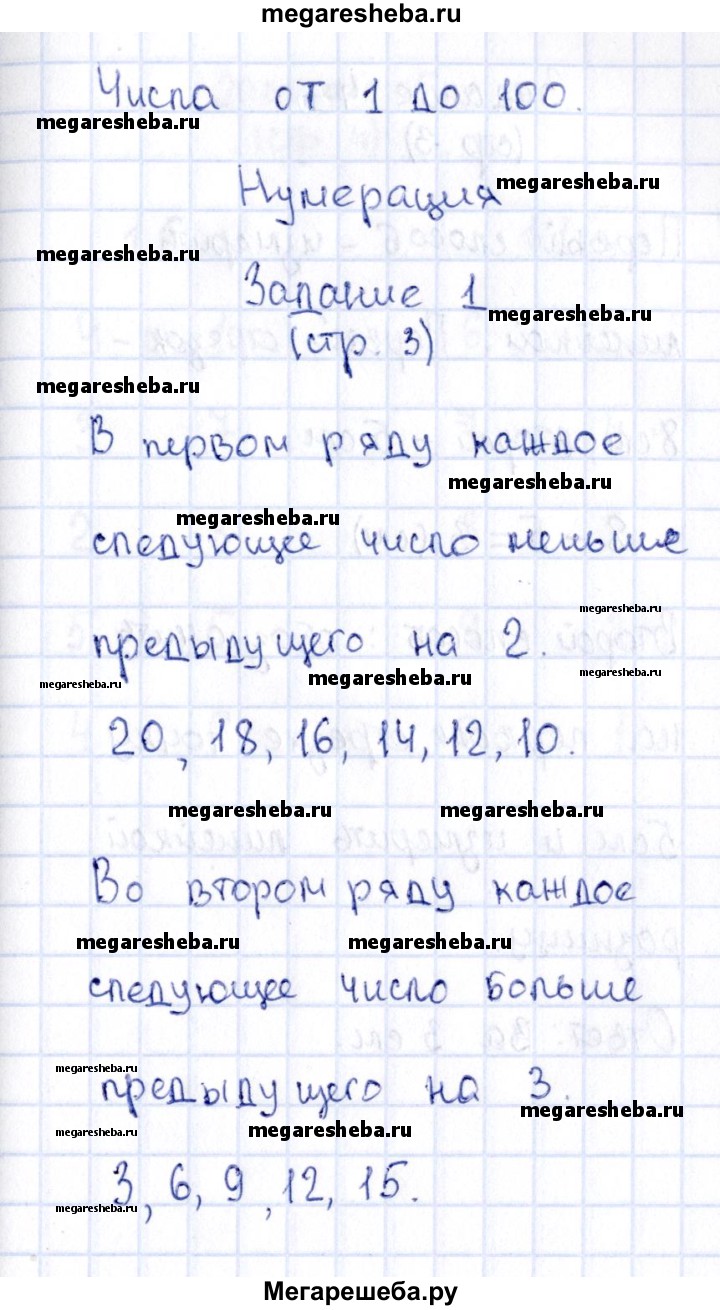 megaresheba.ru
Числа от 1 до 100.
megaresheba.ru
Нумерация
megaresheba.ru
megaresheba.ru
Задание 1
megaresheba.ru
(стр. 3)
megaresheba.ru
В первом ряду каждое
megaresheba.ru
megaresheba.ru
следующее число меньше
megaresheba.ru
предыдущего на 2.
megaresheba.ru
megaresheba.ru
megaresheba.ru
20, 18, 16, 14, 12, 10.
megaresheba.ru
megaresheba.ru
Во втором ряду каждое
megaresheba.ru
megaresheba.ru
следующее число больше
megaresheba.ru
предыдущего на 3.
megaresheba.ru
megaresheba.ru
megaresheba.ru
3, 6, 9, 12, 15.
megaresheba.ru
Мегарешеба.ру